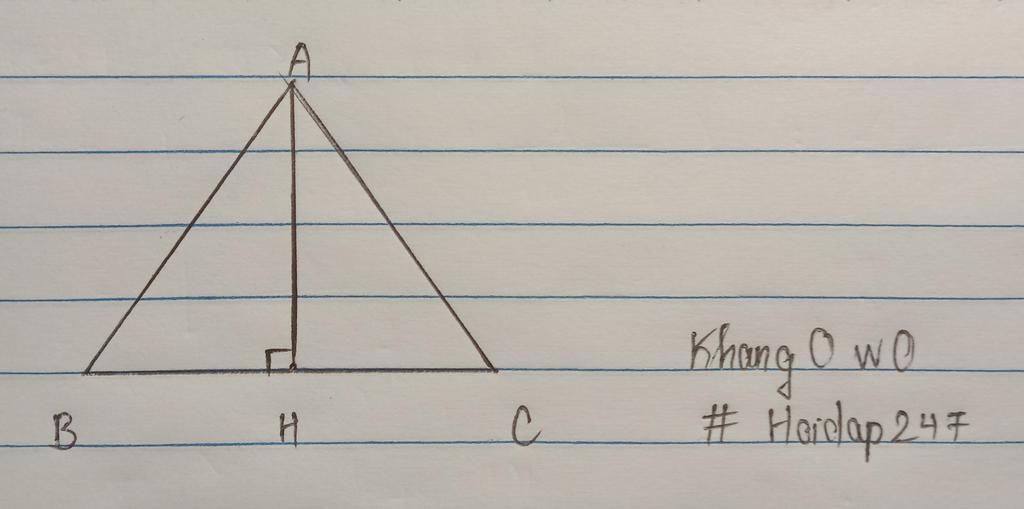 A
B H C
Khang OwO
# Hoidap247